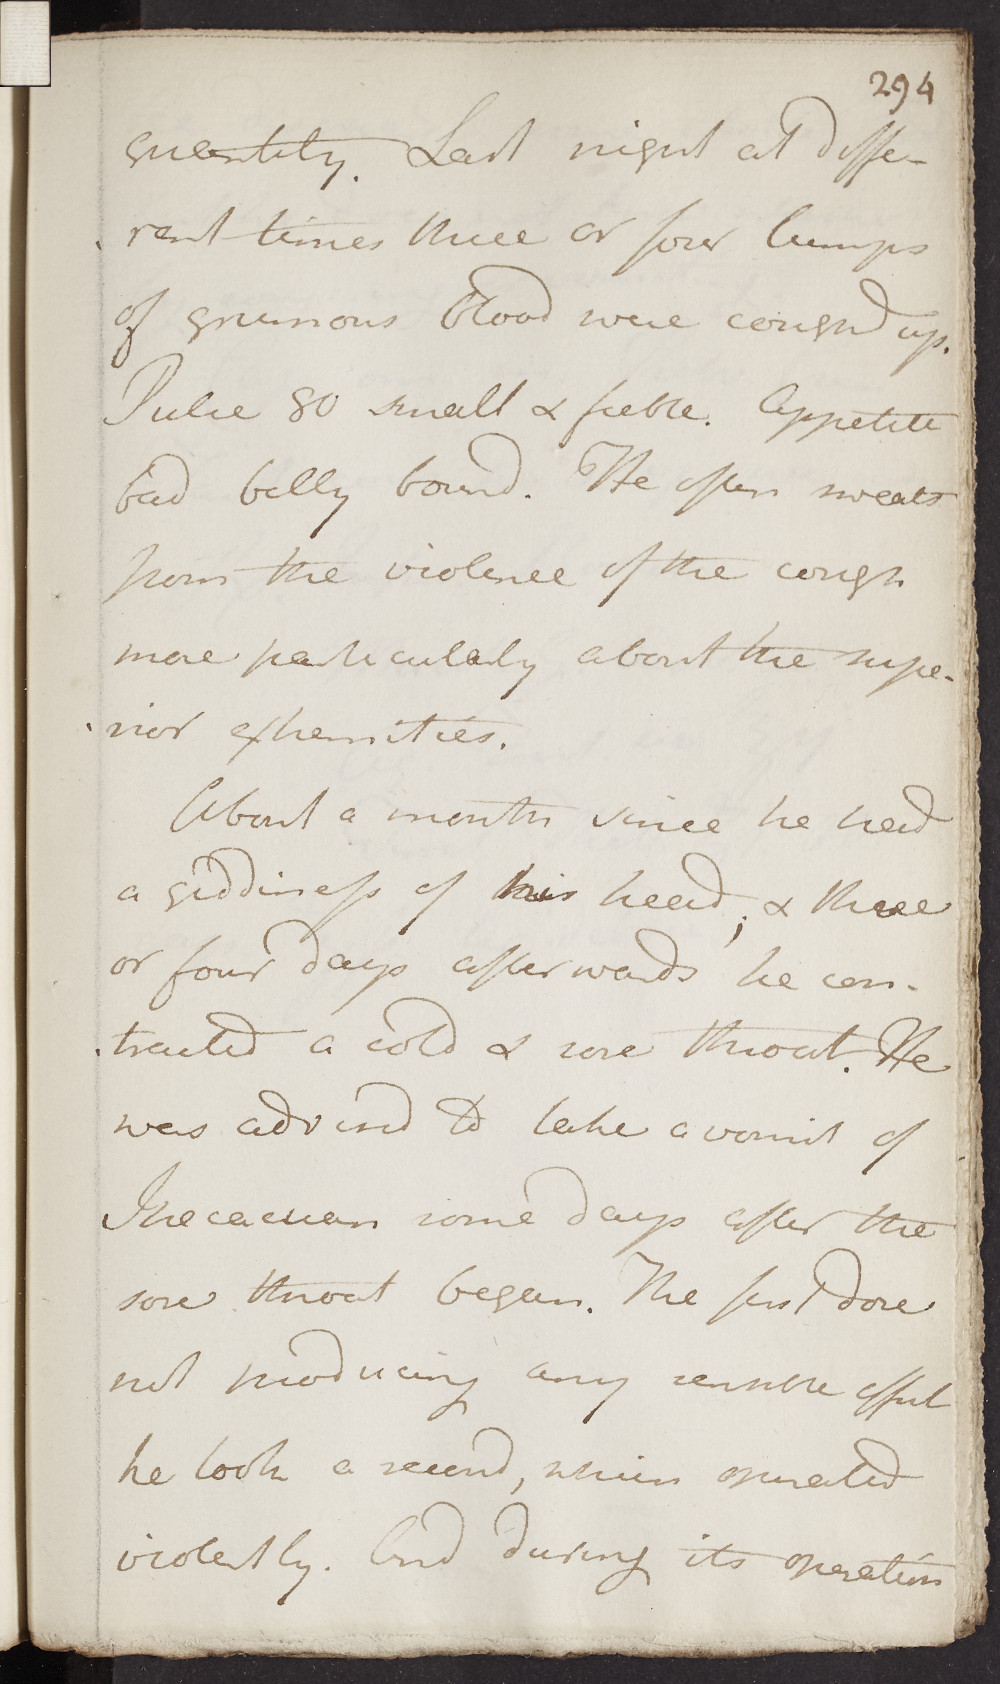 294
quantity. Last night at diffe-
rent times three or four lumps
of grumous blood were coughd up.
Pulse 80 small & feeble. Appetite
bad belly bound. He often sweats
from the violence of the cough
more particularly about the supe-
rior extremities.
About a month since he had
a giddiness of his head; & three
or four days afterwards he con-
tracted a cold & sore throat. He
was advised to take a vomit of
Ipecacuan some days after the
sore throat began. The first dose
not producing any sensible effect
he took a second, which operated
violently. And during its operation